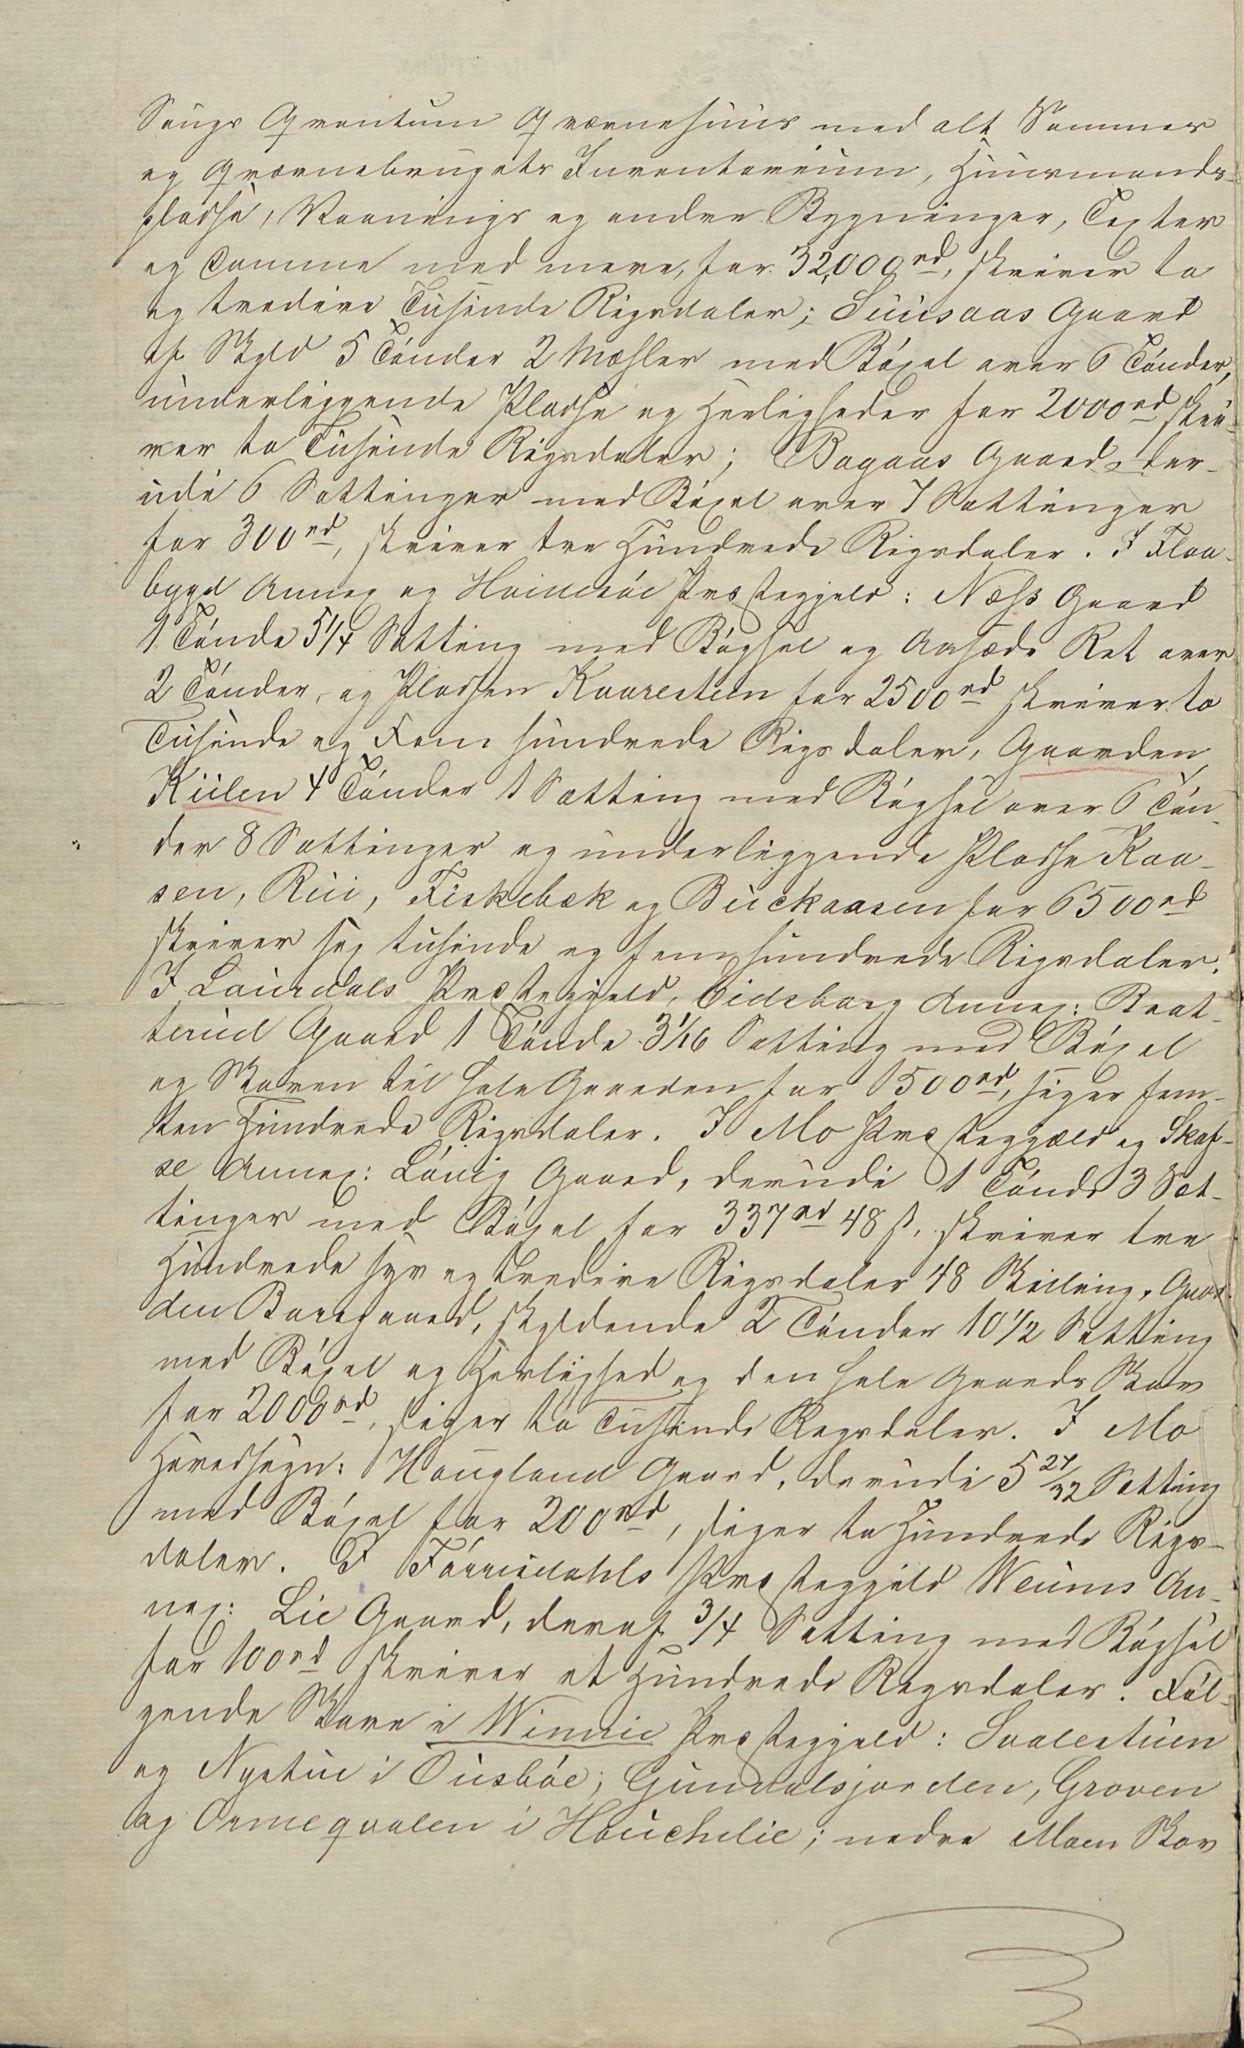 Saugs Qvantum Qværnehuus med alt Sammes
og Qværnebrugets Inventarium, Huusmands-
pladse, Vaanings og andre Bygninger, Tegter
og Damme med mere, for 32,000 rd, skriver to
og tredive Tusinde Rigsdaler; Suusaas Gaard
af Skyld 5 Tønder 2 Mæhler med Bøxel over 6 Tønder,
underliggende Pladse og Herligheder for 2000 rd skri-
ver to Tusinde Rigsdaler; Bagaas Gaard, der-
udi 6 Sættinger med Bøxel over 7 Sættinger
for 300 rd, skriver tre Hundrede Rigsdaler. I Flaa-
bygd Annex og Hvidesøe Præstegjeld: Næss Gaard
1 Tønde 5 1/4 Sætting med Bøgsel og Aasæde Ret over
2 Tønder, og Pladsen Kaaresteen for 2500 rd skriver to
Tusinde og Fem hundrede Rigsdaler, Gaarden
Kiilen 4 Tønder 1 Sætting med Bøgsel over 6 Tøn-
der 8 Sættinger og underliggende Pladse Kaa-
sen, Rui, Fiskebæk og Buckaasen for 6500 rd
skriver sex tusinde og fem hundrede Rigsdaler.
I Laurdals Præstegjeld, Eidsborg Annex: Braat-
terud Gaard 1 Tønde 3 1/16 Sætting med Bøxel
og Skoven til hele Gaarden for 1500 rd, siger fem-
ten Hundrede Rigsdaler. I Mo Præstegjæld og Skaf-
se Annex: Lønig Gaard, derudi 1 Tønde 3 Sæt-
tinger med Bøxel for 337 rd 48 s, skriver tre
Hundrede syv og tredive Rigsdaler 48 Skilling, Gaar-
den Boregaard, skyldende 2 Tønder 10 1/2 Sætting
med Bøxel og Herlighed og den hele Gaards Skov
for 2000 rd, siger to Tusinde Rigsdaler. I Mo
Hovedsogn: Hougland Gaard, derudi 5 27/32 Sætting
med Bøxel for 200 rd, siger to Hundrede Rigs-
daler. I Førrisdahls Præstegjeld Weums An-
nex: Lie Gaard, deraf 3/4 Sætting med Bøgsel
for 100 rd skriver et Hundrede Rigsdaler. Føl-
gende Skove i Winnie Præstegjeld: Svalestuen
og Nystue i Ousbøe; Gundalsjorden, Groven
og Ormeqvalen i Houchelie; nedre Moen Skov